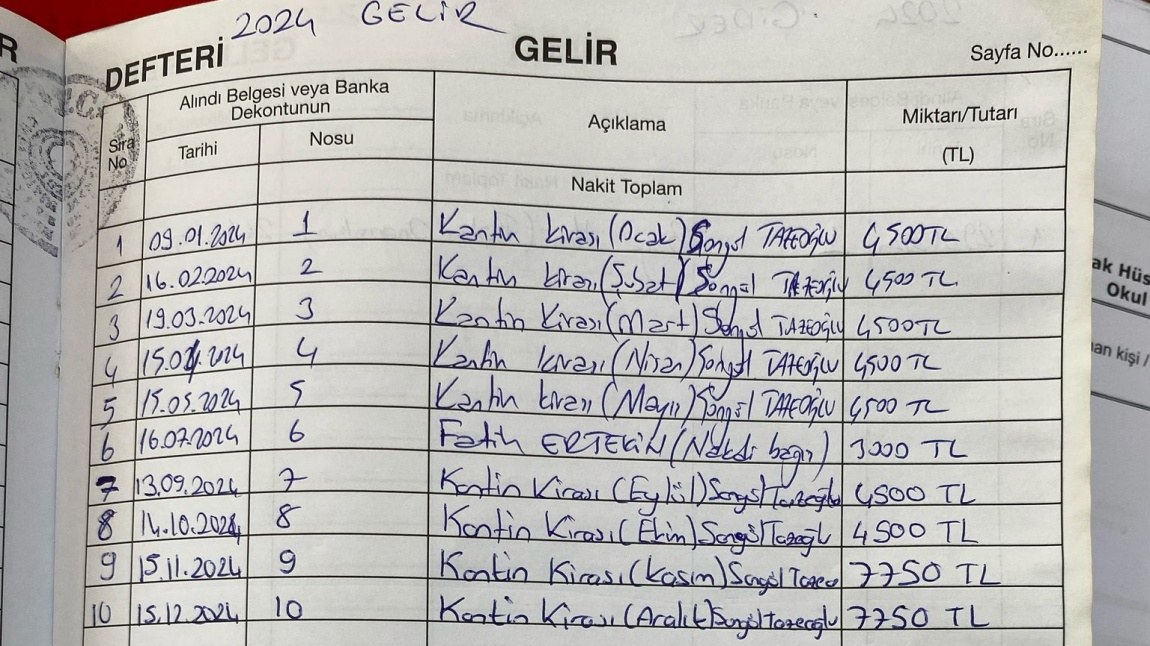 2024 GELİR
DEFTERİ GELİR Sayfa No......
Sıra No Alındı Belgesi veya Banka Dekontunun Açıklama Miktarı/Tutarı (TL)
Tarihi Nosu
Nakit Toplam
1 09.01.2024 1 Kantin kirası (Ocak) Songül TAZEOĞLU 4500TL
2 16.02.2024 2 Kantin kirası (Şubat) Songül TAZEOĞLU 4500 TL
3 19.03.2024 3 Kantin Kirası (Mart) Songül TAZEOĞLU 4500TL
4 15.04.2024 4 Kantin kirası (Nisan) Songül TAZEOĞLU 4500 TL
5 15.05.2024 5 Kantin kirası (Mayıs) Songül TAZEOĞLU 4500 TL
6 16.07.2024 6 Fatih ERTEKİN (Nakdi bağış) 3000 TL
7 13.09.2024 7 Kantin Kirası (Eylül) Songül Tazeoğlu 4500 TL
8 14.10.2024 8 Kantin Kirası (Ekim) Songül Tazeoğlu 4500 TL
9 15.11.2024 9 Kantin Kirası (Kasım) Songül Tazeo 7750 TL
10 15.12.2024 10 Kantin Kirası (Aralık) Songül Tazeoğlu 7750 TL
R
ak Hüs
Okul
nan kişi /